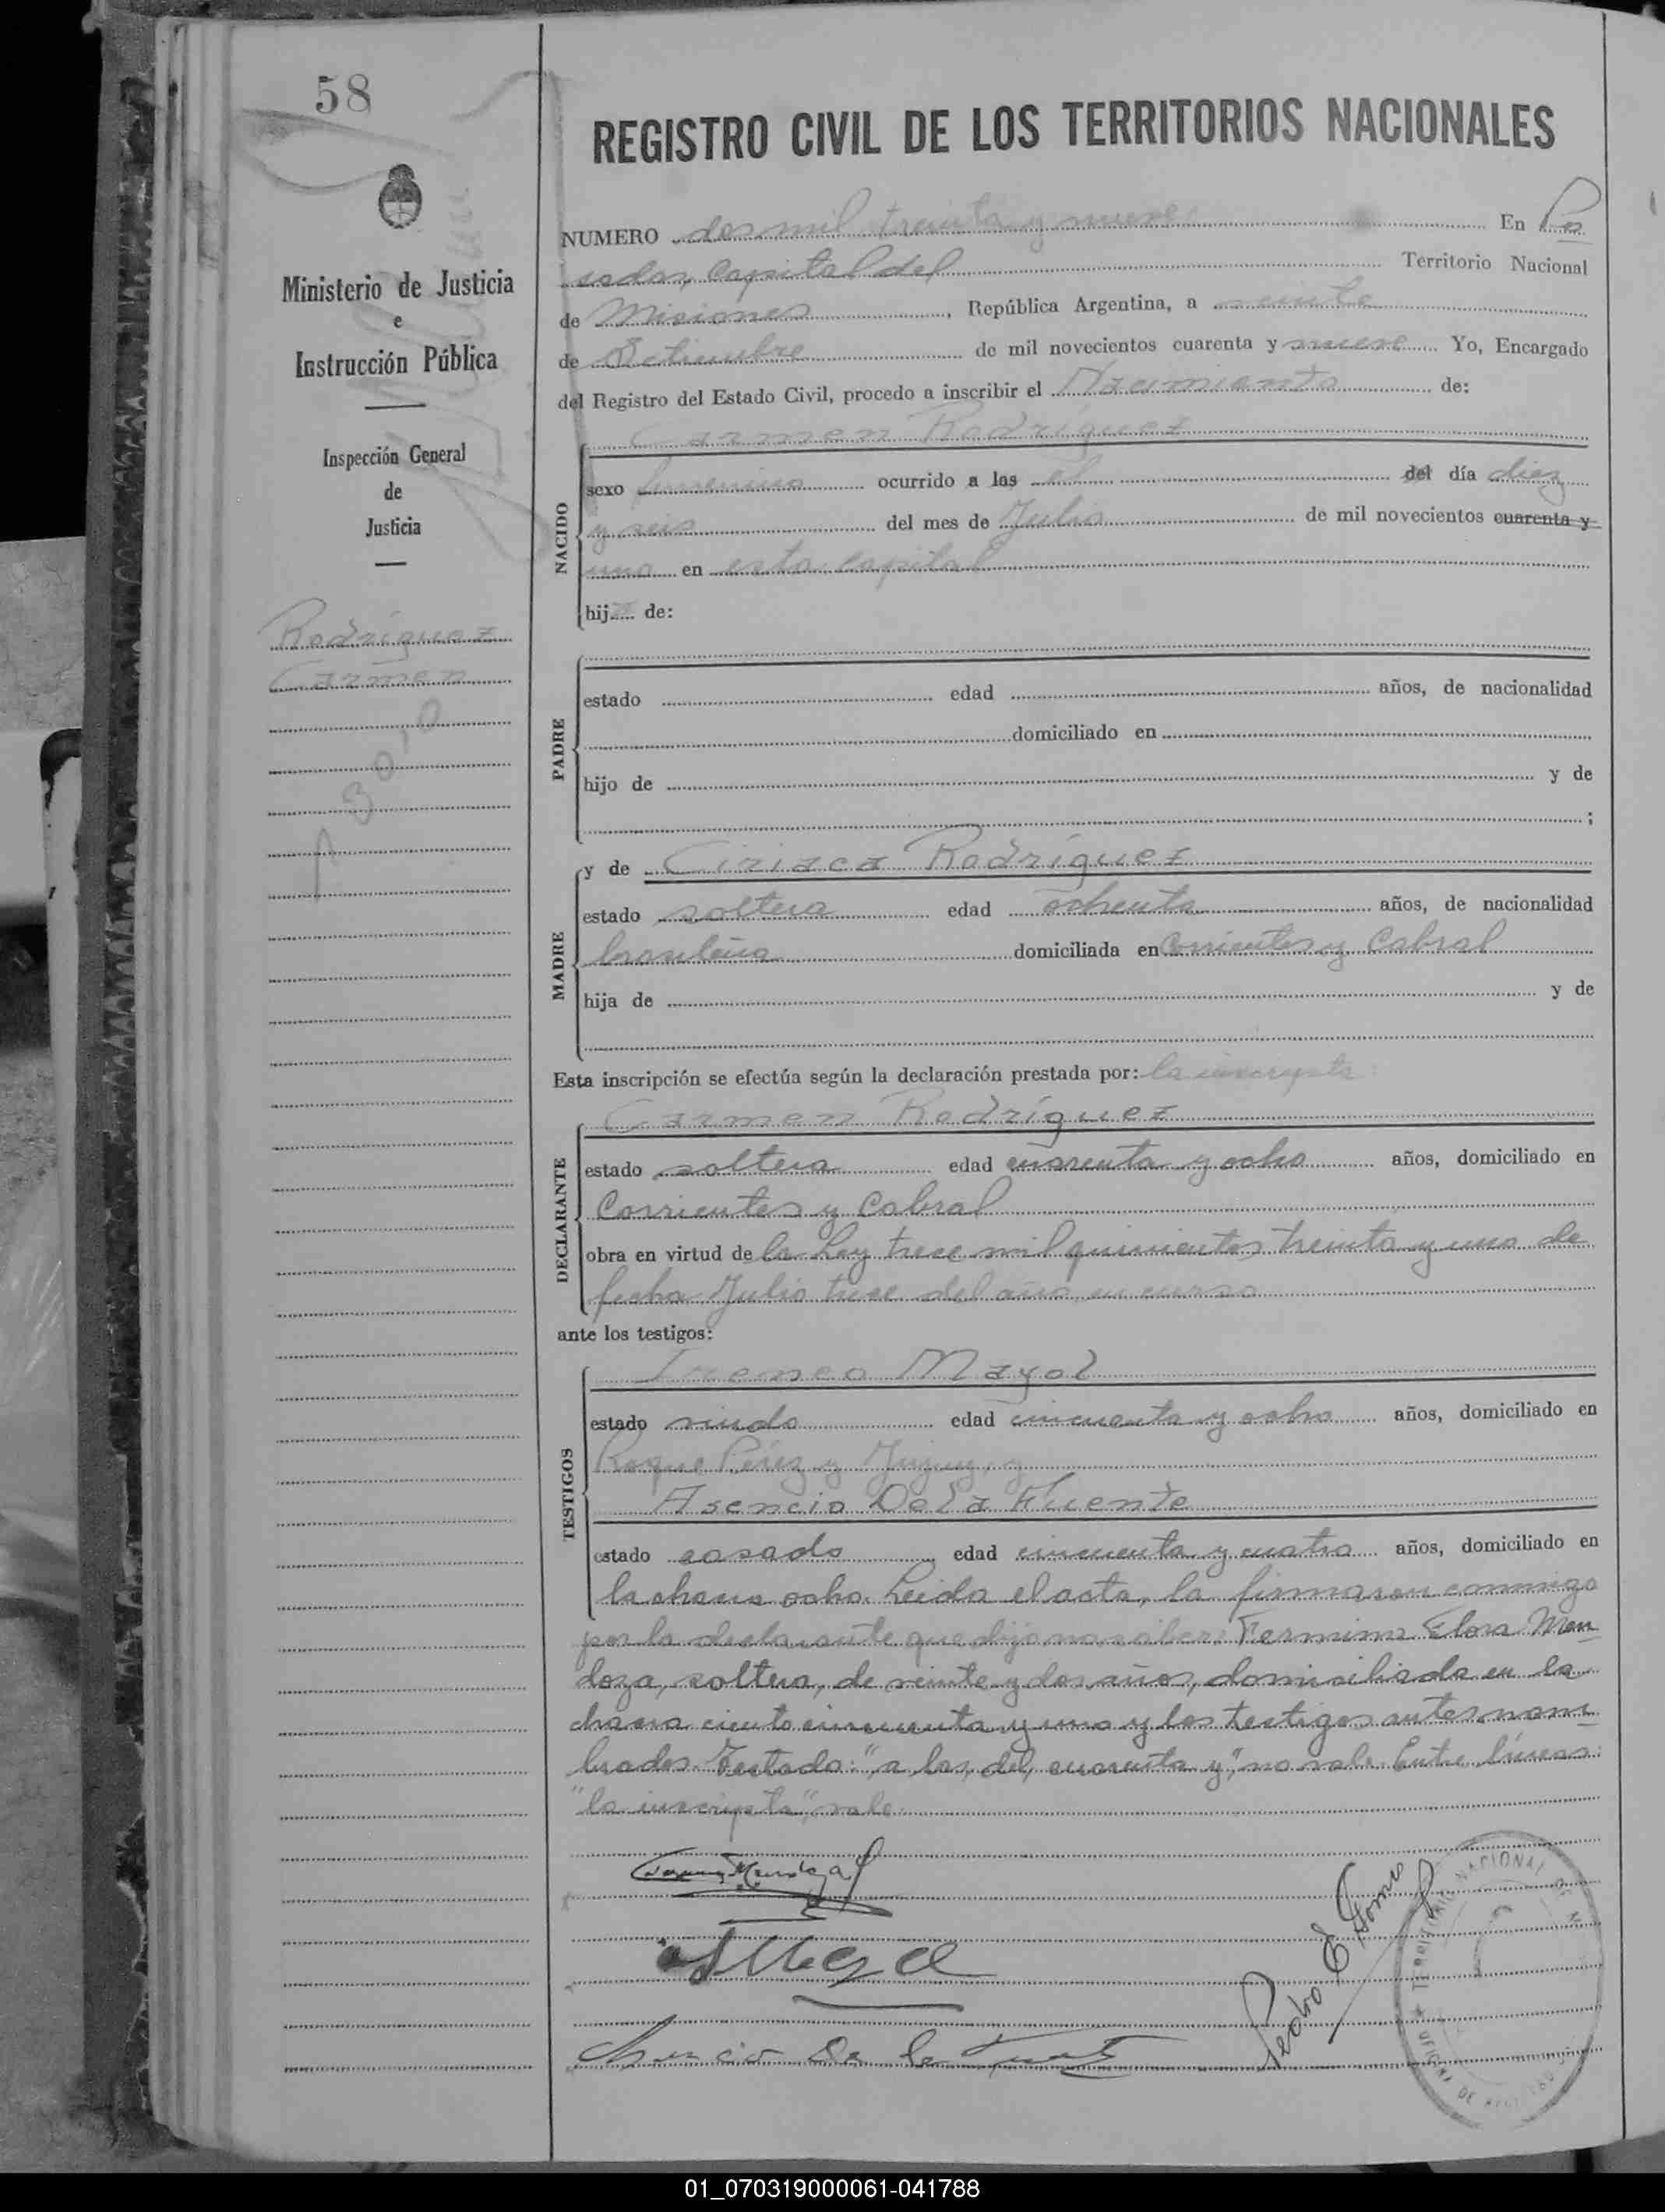 58
REGISTRO CIVIL DE LOS TERRITORIOS NACIONALES
Ministerio de Justicia
e
Instrucción Pública
Inspección General
de
Justicia
Rodríguez
Carmen
NUMERO dos mil treinta y nueve En Po
sadas, Capital del Territorio Nacional
de Misiones, República Argentina, a veinte
de Setiembre de mil novecientos cuarenta y nueve Yo, Encargado
del Registro del Estado Civil, procedo a inscribir el Nacimiento de:
NACIDO
Carmen Rodríguez
sexo femenino ocurrido a las el del día diez
y seis del mes de Julio de mil novecientos cuarenta y
uno en esta capital
hija de:
PADRE
estado edad años, de nacionalidad
domiciliado en
hijo de y de
;
MADRE
y de Ciriaca Rodríguez
estado soltera edad ochenta años, de nacionalidad
brasileña domiciliada en Corrientes y Cabral
hija de y de
Esta inscripción se efectúa según la declaración prestada por: la inscripta:
DECLARANTE
Carmen Rodríguez
estado soltera edad cuarenta y ocho años, domiciliado en
Corrientes y Cabral
obra en virtud de la Ley trece mil quinientos treinta y uno de
fecha Julio trece del año en curso
ante los testigos:
TESTIGOS
Ireneo Mayol
estado viudo edad cincuenta y ocho años, domiciliado en
Roque Pérez y Jujuy, y
Asencio De la Fuente
estado casado edad cincuenta y cuatro años, domiciliado en
la chacra ocho. Leida el acta, la firmaron conmigo
por la declarante que dijo no saber: Fermina Elora Men
doza, soltera, de veinte y dos años, domiciliada en la
chacra ciento cincuenta y uno y los testigos antes nom
brados. Testado: "a las, del, cuarenta y", no vale. Entre líneas:
"la inscripta", vale.
Asencio De la Fuente
Pedro E
TERRITORIO NACIONAL DE
OFICINA DE REGISTRO
01_070319000061-041788